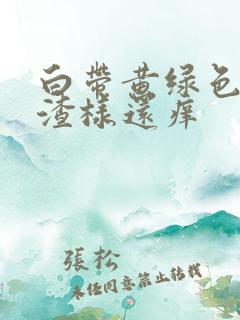 白带黄绿色
渣样还痒
張松
未经同意禁止转载